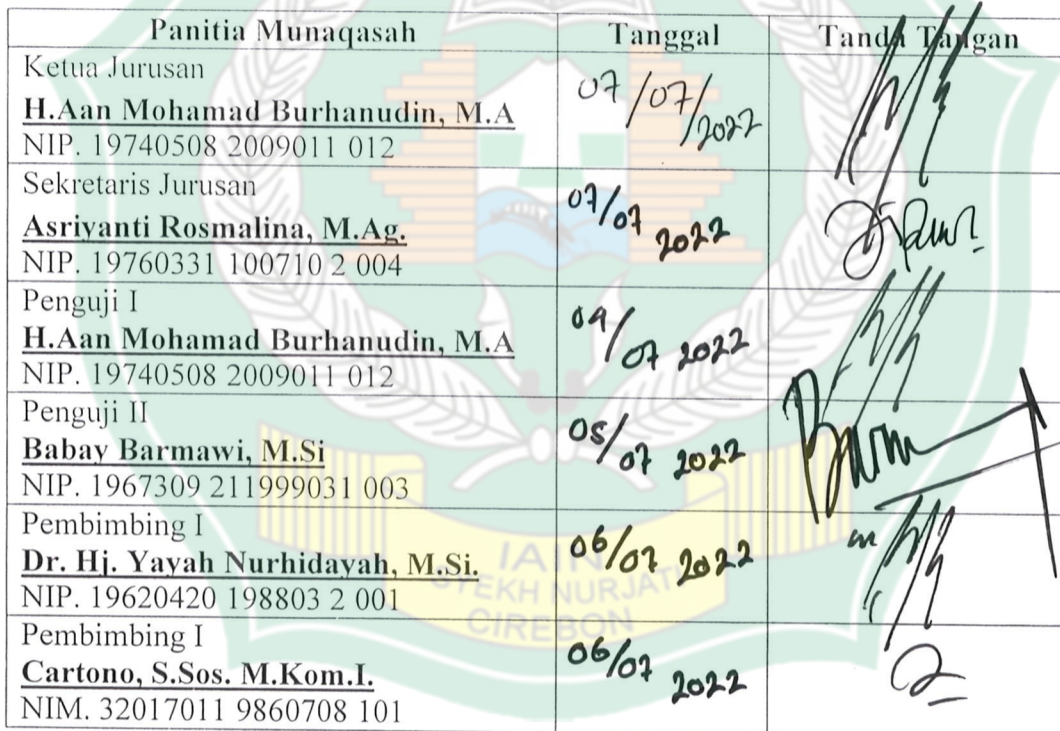 Panitia Munaqasah Tanggal Tanda Tangan
Ketua Jurusan
H.Aan Mohamad Burhanudin, M.A
NIP. 19740508 2009011 012
07/07/2022
Sekretaris Jurusan
Asriyanti Rosmalina, M.Ag.
NIP. 19760331 100710 2 004
07/07 2022
Penguji I
H.Aan Mohamad Burhanudin, M.A
NIP. 19740508 2009011 012
04/07 2022
Penguji II
Babay Barmawi, M.Si
NIP. 1967309 211999031 003
05/07 2022
Pembimbing I
Dr. Hj. Yayah Nurhidayah, M.Si.
NIP. 19620420 198803 2 001
06/07 2022
Pembimbing I
Cartono, S.Sos. M.Kom.I.
NIM. 32017011 9860708 101
06/07 2022
IAIN
SYEKH NURJATI
CIREBON